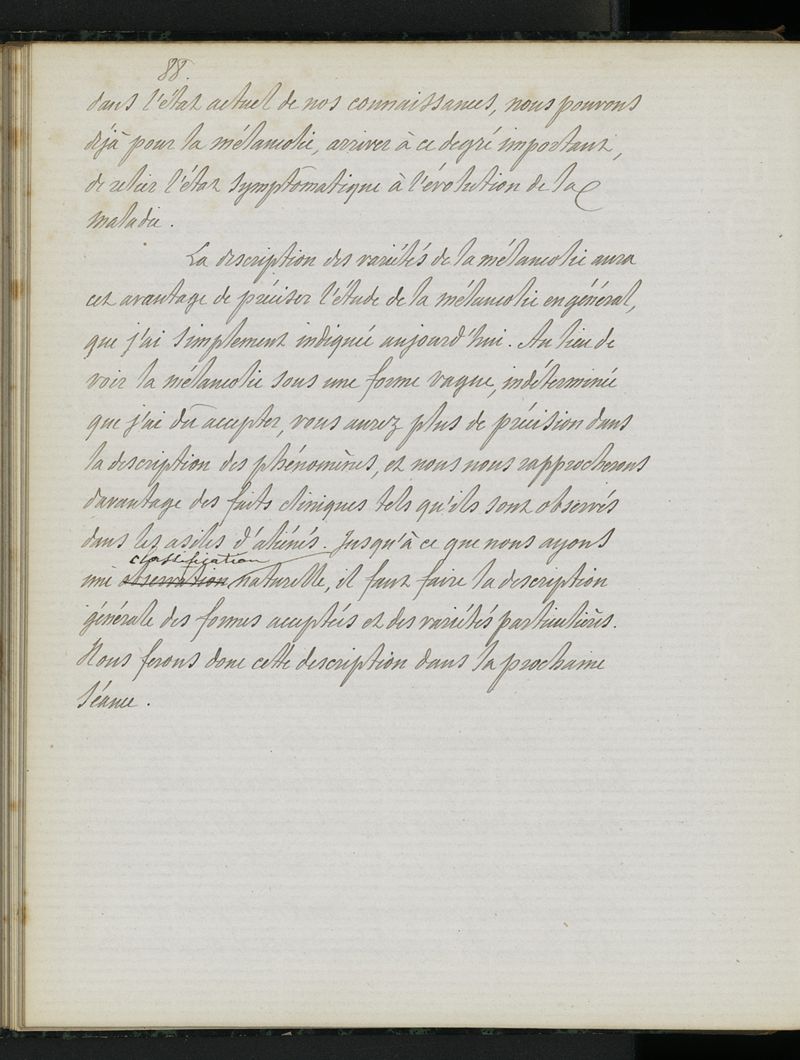 88.
dans l'état actuel de nos connaissances, nous pouvons
déjà pour la mélancolie, arriver à ce degré important,
de relier l'état symptômatique à l'évolution de la
maladie.
La description des variétés de la mélancolie aura
cet avantage de préciser l'étude de la mélancolie en général,
que j'ai simplement indiquée aujourd'hui. Au lieu de
voir la mélancolie sous une forme vague, indéterminée
que j'ai dû accepter, vous aurez plus de précision dans
la description des phénomènes, et nous nous rapprocherons
davantage des faits cliniques tels qu'ils sont observés
dans les asiles d'aliénés. Jusqu'à ce que nous ayons
classification
une observation naturelle, il faut faire la description
générale des formes acceptées et des variétés particulières.
Nous ferons donc cette description dans la prochaine
séance.